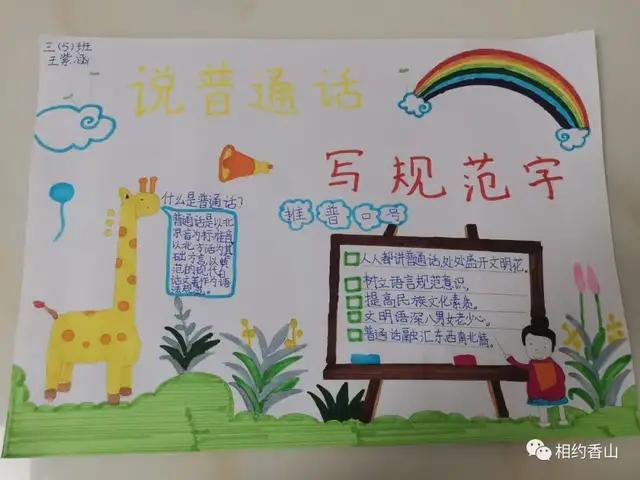 三(5)班
王紫涵
说普通话
写规范字
什么是普通话?
推普口号
普通话是以北
京音为标准音
以北方话为基
础方言,以典
范的现代白
话文著作为语
法规范。
人人都讲普通话,处处盛开文明花。
树立语言规范意识。
提高民族文化素质。
文明语深入男女老少心。
普通话融汇东西南北情。
相约香山